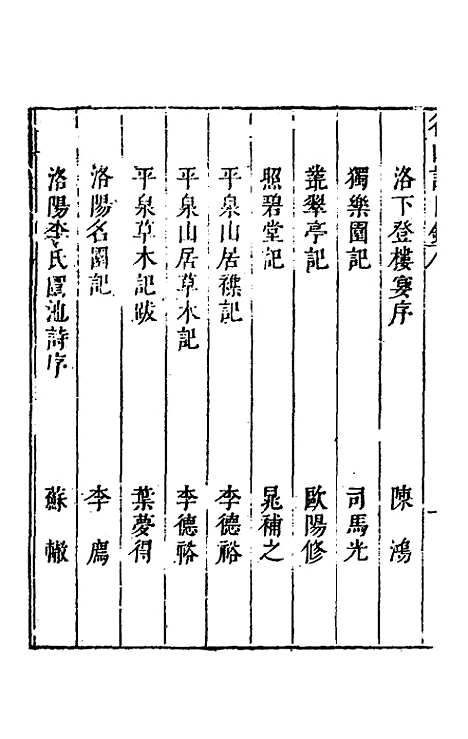 洛下登樓宴序 陳鴻
獨樂園記 司馬光
叢翠亭記 歐陽修
照碧堂記 晁補之
平泉山居襍記 李德裕
平泉山居草木記 李德裕
平泉草木記跋 葉夢得
洛陽名園記 李廌
洛陽李氏園池詩序 蘇轍